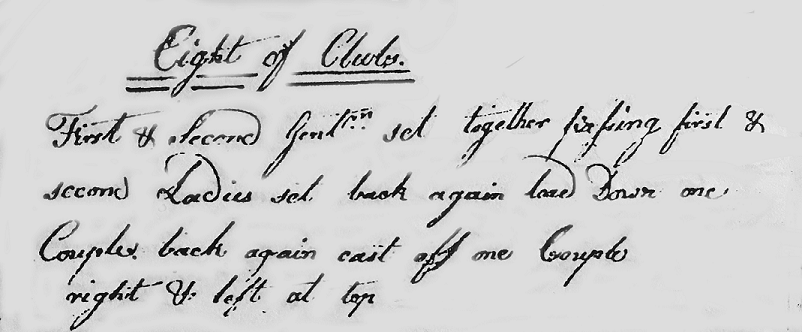 Eight of Clubs.
First & Second Gentmn set together first &
second Ladies set back again lead Down one
Couple. back again cast off one Couple
right & left at top